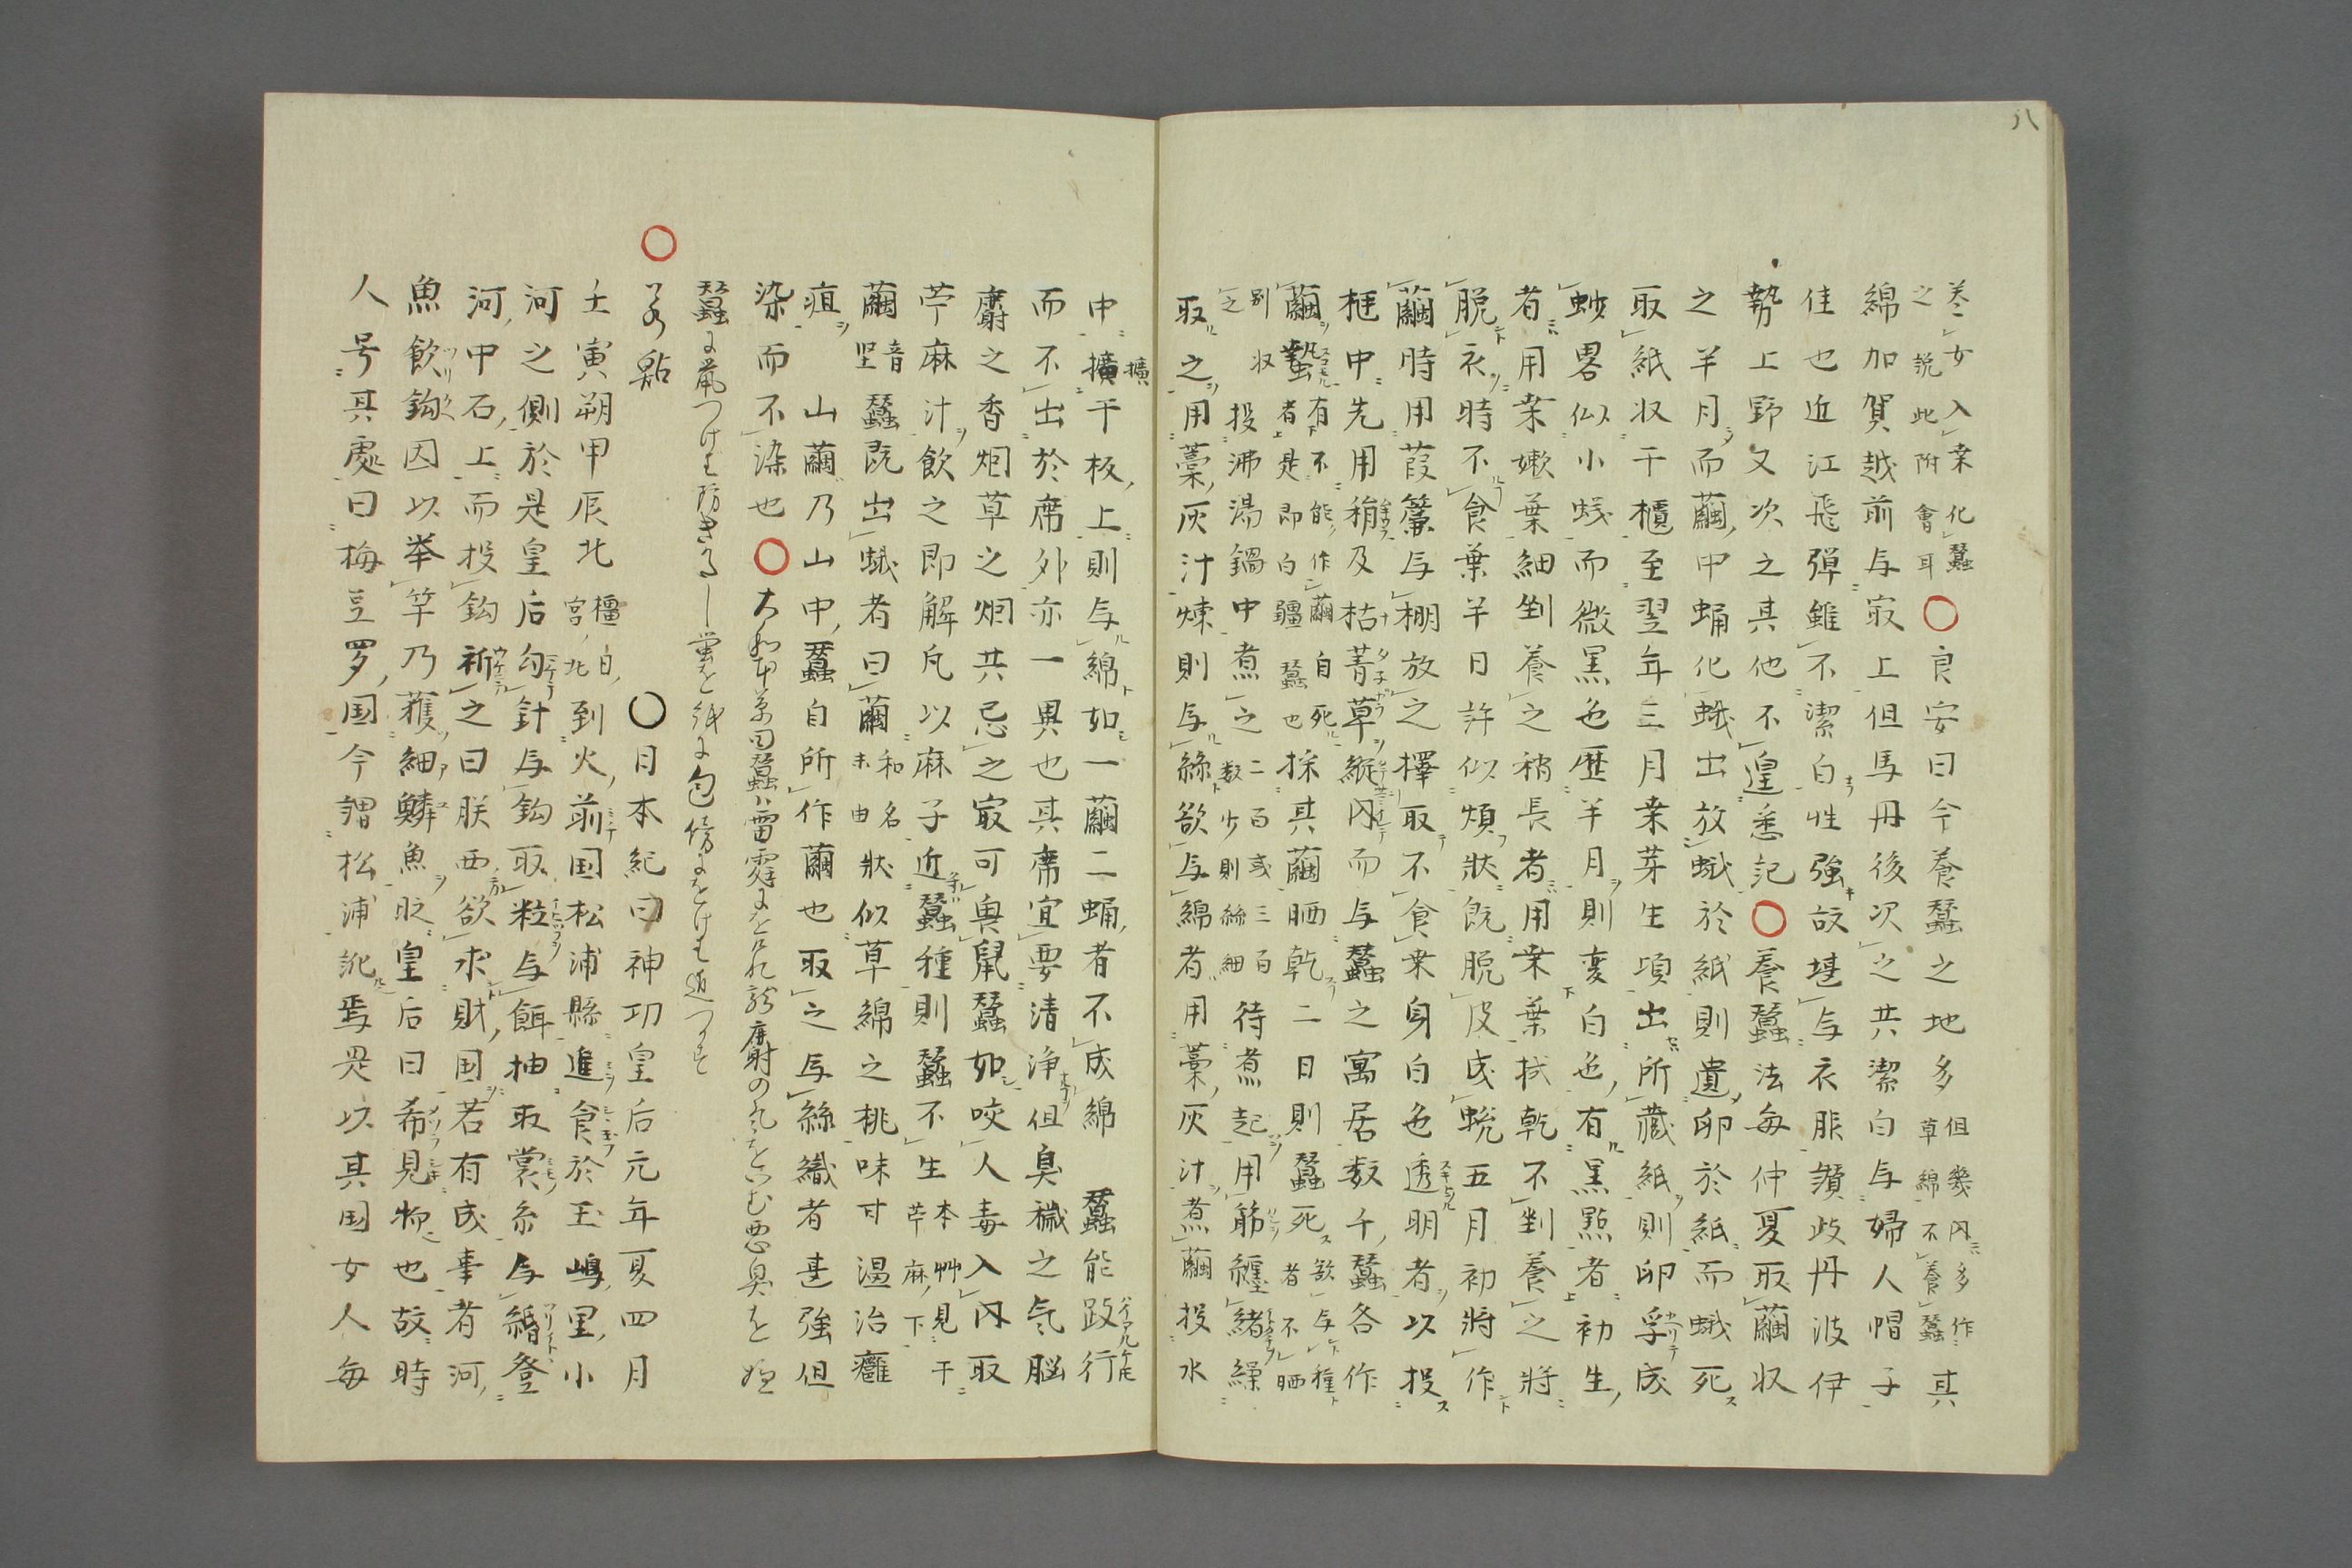 八
蓋ニ女入桑化蠶
之説此附會耳○良安曰今養蠶之地多 但畿内多作草綿不養蠶 其
綿加賀越前与㝡上但馬丹後次之共潔白与婦人帽子
佳也近江飛彈雖不潔白性強故堪与衣服讃岐丹波伊
勢上野又次之其他不遑悉記○養蠶法每仲夏取繭収
之半月而繭中蛹化蛾出放蛾於紙則遺卵於紙而蛾死
取紙収于櫃至翌年三月桒芽生項出所藏紙則卵孚成
䖢畧似小蛷而微黒色歴半月則変白色有黒點者初生
者用桒嫰葉細剉養之稍長者用桒葉拭乾不剉養之將
脱衣時不食葉半日許似煩狀既脱皮成蛻五月初將作
繭時用葭簾与棚放之擇取不食桒身白色透明者以投
框中先用稍及枯菁草縦内而与蠶之寓居数千蠶各作
繭 蟄有不能作繭自死者是即白疆蠶也 採其繭晒乾二日則蠶死 欲与種者不晒
別収之 投沸湯鍋中煮之 二百或三百数少則絲細 待煮起用筯纒緒繰
取之用藁灰汁煉則与絲欲与綿者用藁灰汁煮繭投水
中擴于板上則与綿如一繭二蛹者不成綿 蠶能跂行
而不出於席外亦一異也其席宜要清浄但臭穢之气脳
麝之香烟草之烟共忌之㝡可奥鼠蠶如咬人毒入内取
苧麻汁飲之即解凡以麻子近蠶種則蠶不生 本艸見于苧麻下
繭 音堅 蠶既出蛾者曰繭 和名末由 狀似草綿之桃味甘温治癰
疽 山繭乃山中蠶自所作繭也取之与絲織者甚強但
染而不染也○大和本草曰蠶ハ雷霆におそれ 麝の气をいむ悪臭を
蠶に を紙に包傍におけは
若鮎
○日本紀曰神功皇后元年夏四月
壬寅朔甲辰北 橿日宮北 到火前国松浦縣進食於玉嶋里小
河之側於是皇后勾針与鈎取粒与餌抽取裳糸与緡登
河中石上而投鈎祈之曰朕西欲求財国若有成事者河
魚飲鈎因以举竿乃獲細鱗魚時皇后曰希見物也故時
人号其處曰梅豆羅国今謂松浦訛焉是以其国女人每